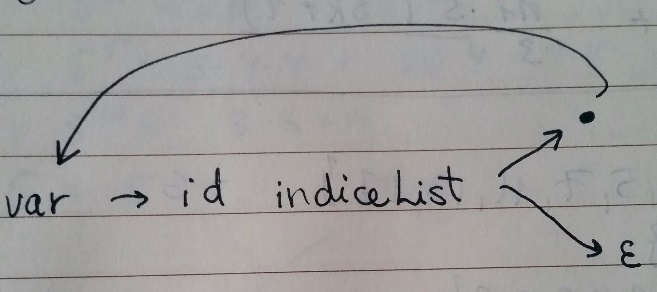 .
var → id indiceList
ε